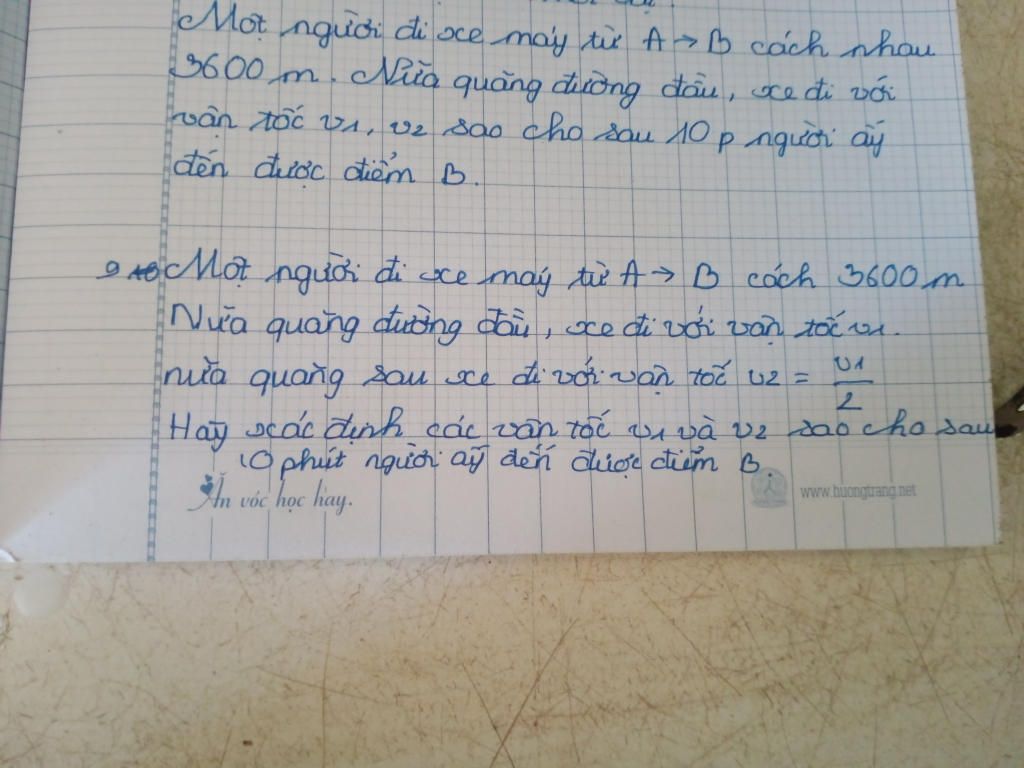 Một người đi xe máy từ A → B cách nhau
3600 m. Nửa quãng đường đầu, xe đi với
vận tốc v1, v2 sao cho sau 10 p người ấy
đến được điểm B.
9 Một người đi xe máy từ A → B cách 3600 m
Nửa quãng đường đầu, xe đi với vận tốc v1.
nửa quãng sau xe đi với vận tốc v2 = v1/2
Hãy xác định các vận tốc v1 và v2 sao cho sau
10 phút người ấy đến được điểm B
Ăn vóc học hay.
www.huongtrang.net